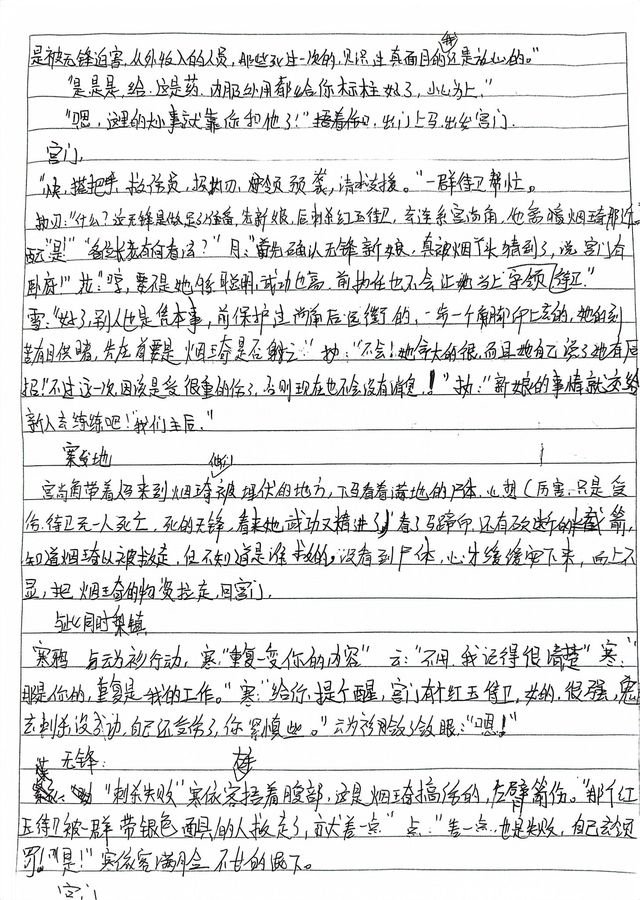 是被无锋迫害,从外收入的人员,那些 一次的,见识过真面目的我还是放心的。"
"是是是,给,这是药,内服外用都给你标注好了,小心为上。"
"嗯,这里的大小事就靠你和他了!"捂着伤口,出门上马,出发宫门.
宫门,
"快,搭把手,救伤员,报执刃,请求支援。"一群侍卫帮忙。
执刃:"什么?这无锋是做足了准备,先新娘,后刺杀红玉侍卫,去联系宫尚角,他需 烟琦那
"是" 有何看法?"月:"首先确认无锋新娘,真被烟丫头猜到了,说宫门有
卧底!" "哼,要不是她 聪明,武功也高,前执任也不会让她当上首领侍卫"
雪:"好了,别人也是凭本事,前保护过尚角后 的,一步一个脚印上去的,她的刻
苦有目共睹,先在首要是烟琦是否 " 执:"不会!她命大的很,而且她自己说了她有后
招!不过这一次,因该是受很重的伤了,否则现在也不会没有消息!"执:"新娘的事情就交给
新人去练练吧!""我们主后。"
案发地
宫尚角带着人来到烟琦他们被埋伏的地方,下马看着满地的尸体,心想(厉害,只是受
伤,侍卫无一人死亡,死的无锋,看来她武功又精进了)看了马蹄印,还有砍断的半截箭,
知道烟琦以被救走,但不知道是谁救的,没看到尸体,心才缓缓安下来,面上不
显,把烟琦的物资拉走,回宫门,
与此同时梨镇
寒鸦 与云为衫行动,寒:"重复一变你的内容" 云:"不用,我记得很清楚" 寒:"
那是你的,重复是我的工作。" 寒:"给你提个醒,宫门有个红玉侍卫,女的,很强,
去刺杀没成功,自己还受伤了,你 慎些。"云为衫敛了敛眼:"嗯!"
无锋:
"刺杀失败"寒依客捂着腹部,这是烟琦搞伤的,左臂箭伤。"那个红
玉侍卫被一群带银色面具的人救走了,就差一点" 点:"差一点也是失败,自己去领
罚!""是!"寒依客满身 不甘的退下。
宫门